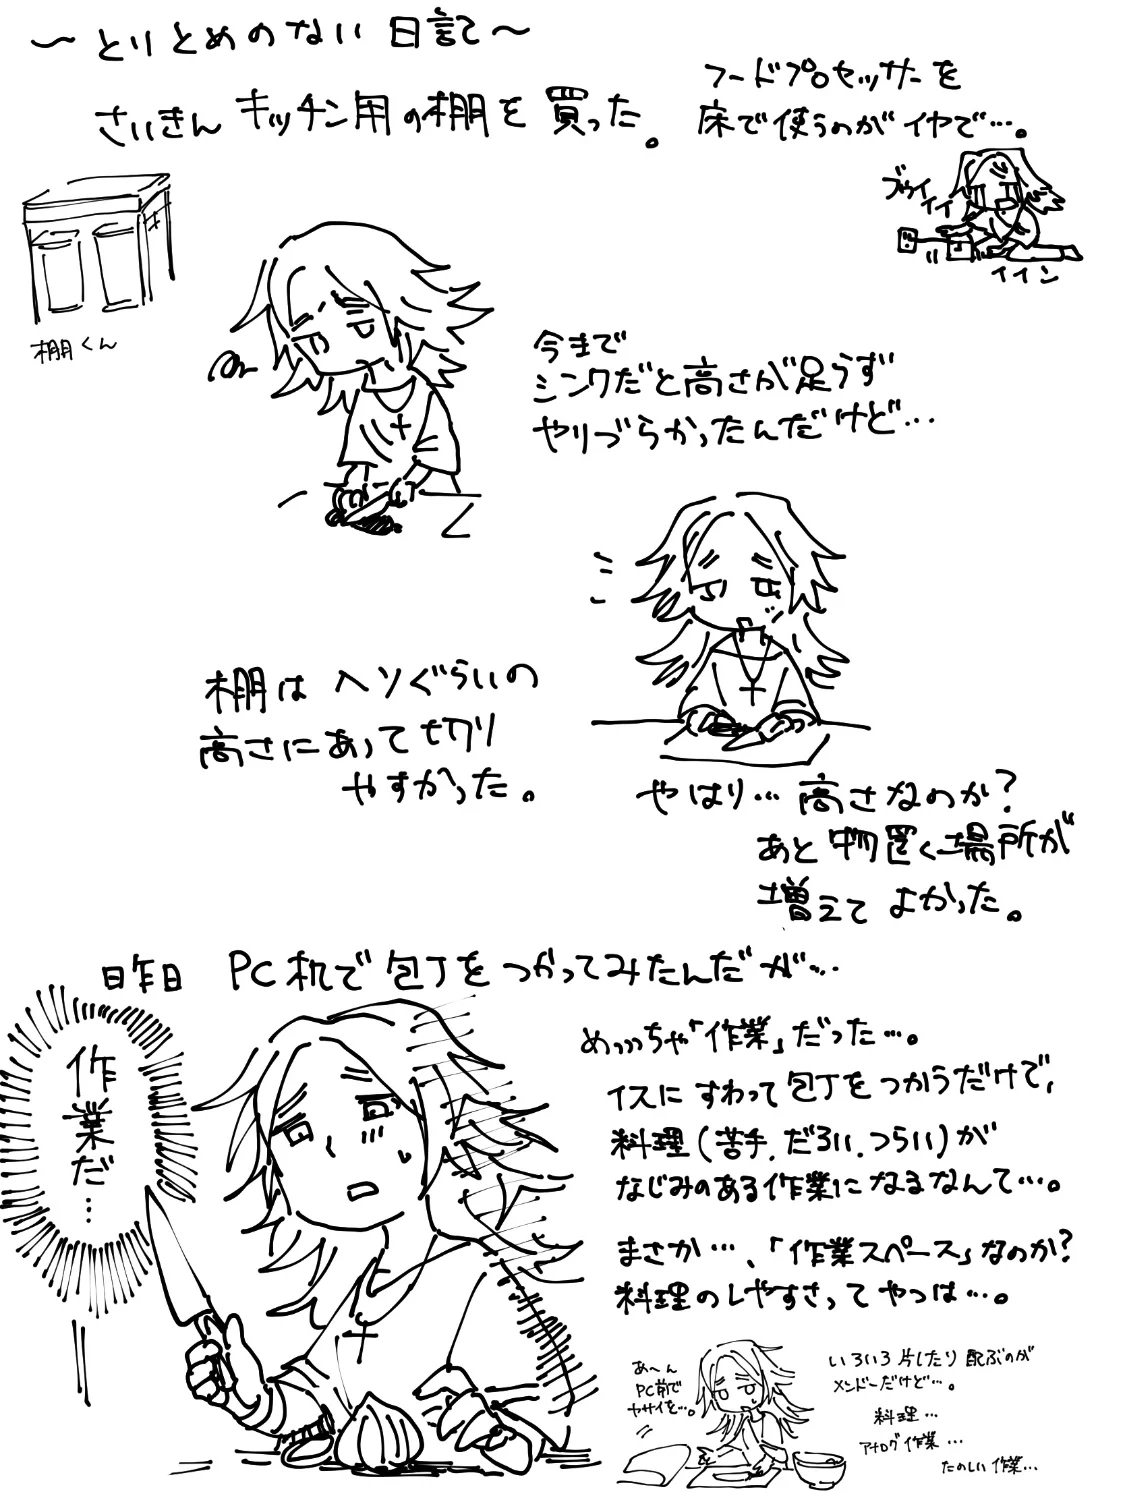 ～とりとめのない日記～
さいきんキッチン用の棚を買った。
フードプロセッサーを
床で使うのがイヤで…。
ブゥイ
イイ
イイン
棚くん
今まで
シンクだと高さが足らず
やりづらかったんだけど…
棚はヘソぐらいの
高さにあって切り
やすかった。
やはり…高さなのか?
あと物置く場所が
増えてよかった。
昨日 PC机で包丁をつかってみたんだが…
作業だ…
めっっっちゃ「作業」だった…。
イスにすわって包丁をつかうだけで、
料理(苦手、だるい、つらい)が
なじみのある作業になるなんて…。
まさか…、「作業スペース」なのか?
料理のしやすさってやつは…。
あ～ん
PC前で
ヤサイを…。
いろいろ片したり配ぶのが
メンドーだけど…。
料理…
アナログ作業…
たのしい作業…